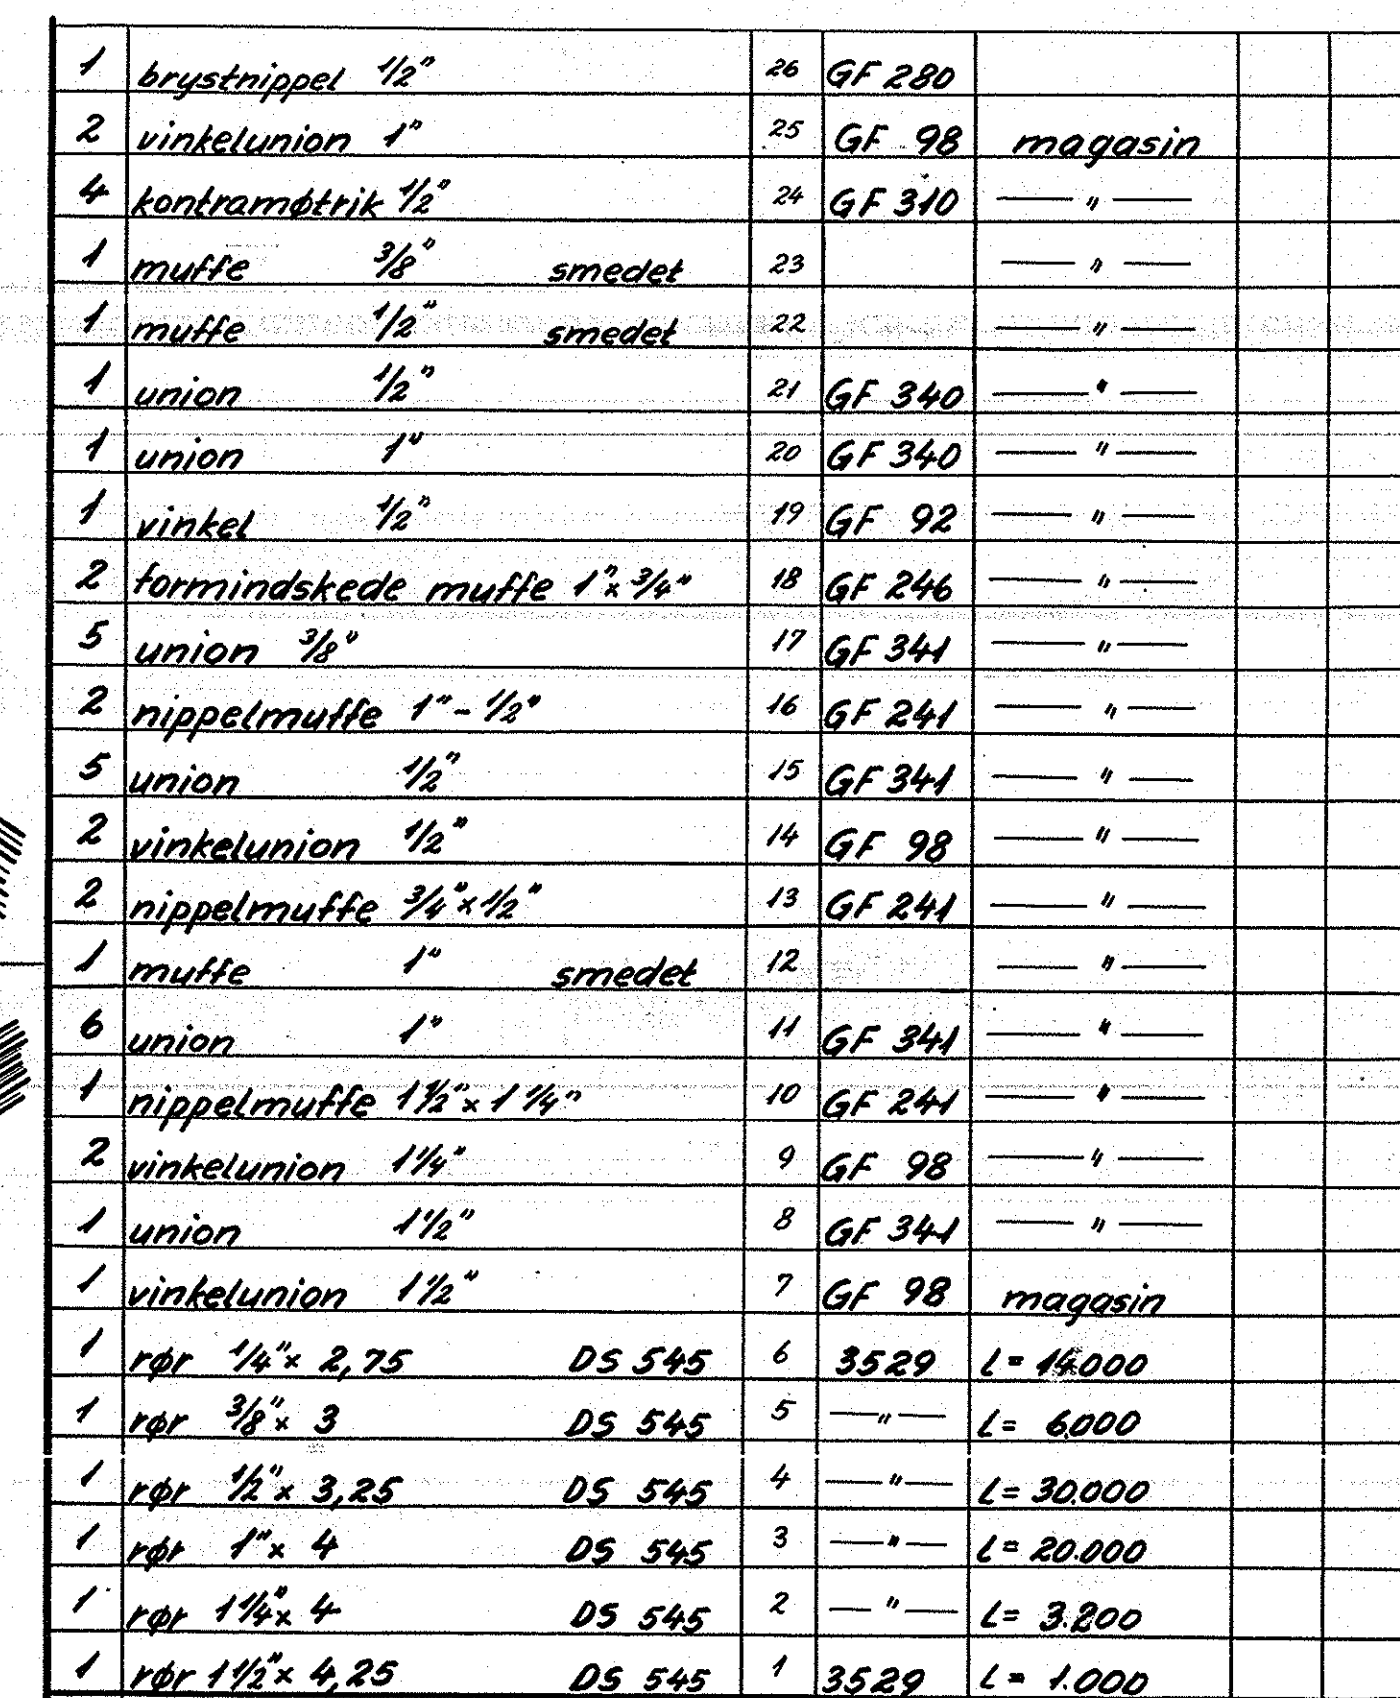 1 brystnippel 1/2" 26 GF 280
2 vinkelunion 1" 25 GF 98 magasin
4 kontramøtrik 1/2" 24 GF 310 — " —
1 muffe 3/8" smedet 23 — " —
1 muffe 1/2" smedet 22 — " —
1 union 1/2" 21 GF 340 — " —
1 union 1" 20 GF 340 — " —
1 vinkel 1/2" 19 GF 92 — " —
2 formindskede muffe 1"x 3/4" 18 GF 246 — " —
5 union 3/8" 17 GF 341 — " —
2 nippelmuffe 1" - 1/2" 16 GF 241 — " —
5 union 1/2" 15 GF 341 — " —
2 vinkelunion 1/2" 14 GF 98 — " —
2 nippelmuffe 3/4"x 1/2" 13 GF 241 — " —
1 muffe 1" smedet 12 — " —
6 union 1" 11 GF 341 — " —
1 nippelmuffe 1 1/2"x 1 1/4" 10 GF 241 — " —
2 vinkelunion 1 1/4" 9 GF 98 — " —
1 union 1 1/2" 8 GF 341 — " —
1 vinkelunion 1 1/2" 7 GF 98 magasin
1 rør 1/4"x 2,75 DS 545 6 3529 L= 14.000
1 rør 3/8"x 3 DS 545 5 — " — L= 6.000
1 rør 1/2"x 3,25 DS 545 4 — " — L= 30.000
1 rør 1"x 4 DS 545 3 — " — L= 20.000
1 rør 1 1/4"x 4 DS 545 2 — " — L= 3.200
1 rør 1 1/2"x 4,25 DS 545 1 3529 L= 1.000